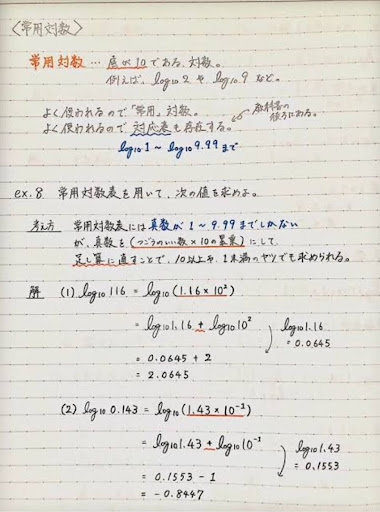 〈常用対数〉
常用対数 … 底が10である、対数。
例えば、log₁₀2 や log₁₀9 など。
よく使われるので「常用」対数。
よく使われるので、対応表も存在する。
教科書の
後ろにある。
log₁₀1 〜 log₁₀9.99 まで
ex.8 常用対数表を用いて、次の値を求めよ。
考え方 常用対数表には真数が1〜9.99までしかない
が、真数を(つごうのいい数×10の累乗)にして、
足し算に直すことで、10以上や、1未満のヤツでも求められる。
解 (1) log₁₀116 = log₁₀(1.16×10²)
= log₁₀1.16 + log₁₀10²
log₁₀1.16
= 0.0645
= 0.0645 + 2
= 2.0645
(2) log₁₀0.143 = log₁₀(1.43×10⁻¹)
= log₁₀1.43 + log₁₀10⁻¹
log₁₀1.43
= 0.1553
= 0.1553 − 1
= −0.8447